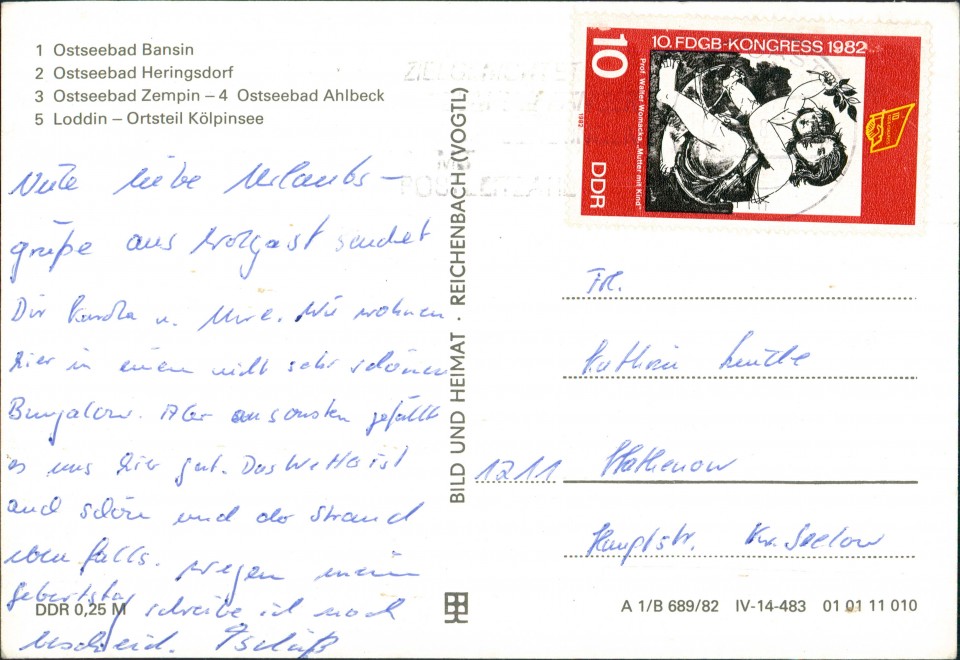 1 Ostseebad Bansin
2 Ostseebad Heringsdorf
3 Ostseebad Zempin – 4 Ostseebad Ahlbeck
5 Loddin – Ortsteil Kölpinsee
Viele liebe Urlaubs-
grüße aus Wolgast sendet
Dir u. Wir wohnen
hier in einem nicht sehr schönen
Bungalow. Aber ansonsten gefällt
es uns hier gut. Das Wetter ist
auch schön und der Strand
ebenfalls. Wegen meinem
Geburtstag schreibe ich noch
bescheid. Tschüß
DDR 0,25 M
BILD UND HEIMAT · REICHENBACH (VOGTL)
10. FDGB-KONGRESS 1982
10
DDR
1982
Prof. Walter Womacka, „Mutter mit Kind"
Frl.
Kathrin
1211
Hauptstr. Kr. Seelow
A 1/B 689/82 IV-14-483 01 01 11 010